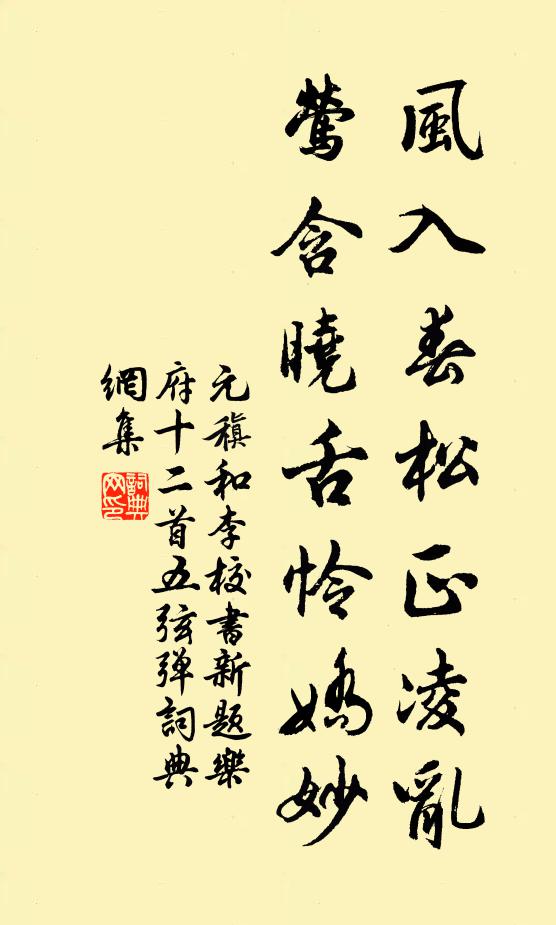 風入春松正凌亂
鶯含曉舌怜嬌妙
元稹和李校書新題樂
府十二首五弦弹詞典
網集
詞典
网印